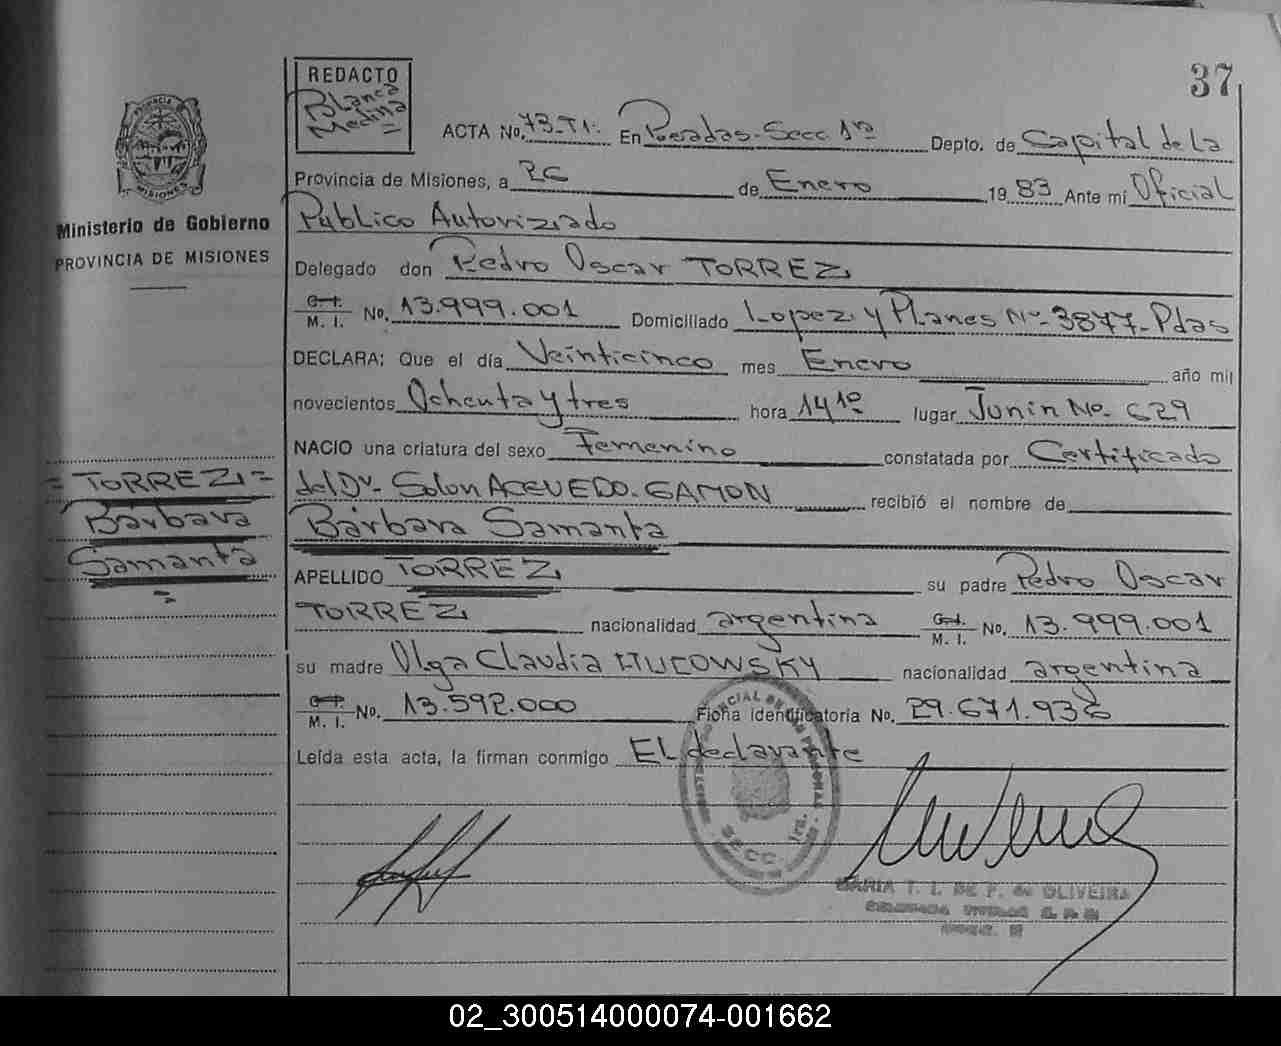 37
REDACTO
Blanca
Medina
PROVINCIA DE
MISIONES
Ministerio de Gobierno
PROVINCIA DE MISIONES
ACTA No. 73-T1: En Posadas-Secc 1ra Depto. de Capital de la
Provincia de Misiones, a 26 de Enero 1983 Ante mí Oficial
Publico Autorizado
Delegado don Pedro Oscar TORREZ
C. I. M. I. No. 13.999.001 Domiciliado Lopez y Planes No-3877-Pdas
DECLARA: Que el día Veinticinco mes Enero año mil
novecientos Ochenta y tres hora 14 10 lugar Junin No. 629
NACIO una criatura del sexo Femenino constatada por Certificado
del Dr. Solon ACEVEDO-GAMON recibió el nombre de
Bárbara Samanta
APELLIDO TORREZ su padre Pedro Oscar
TORREZ nacionalidad argentina C. I. M. I. No. 13.999.001
su madre Olga Claudia nacionalidad argentina
C. I. M. I. No. 13.592.000 Ficha identificatoria No. 29.671.936
Leída esta acta, la firman conmigo El declarante
=TORREZ=
Bárbara
Samanta
=
SECC. 1ra.
MARIA T. I. DE F. de OLIVEIRA
02_300514000074-001662